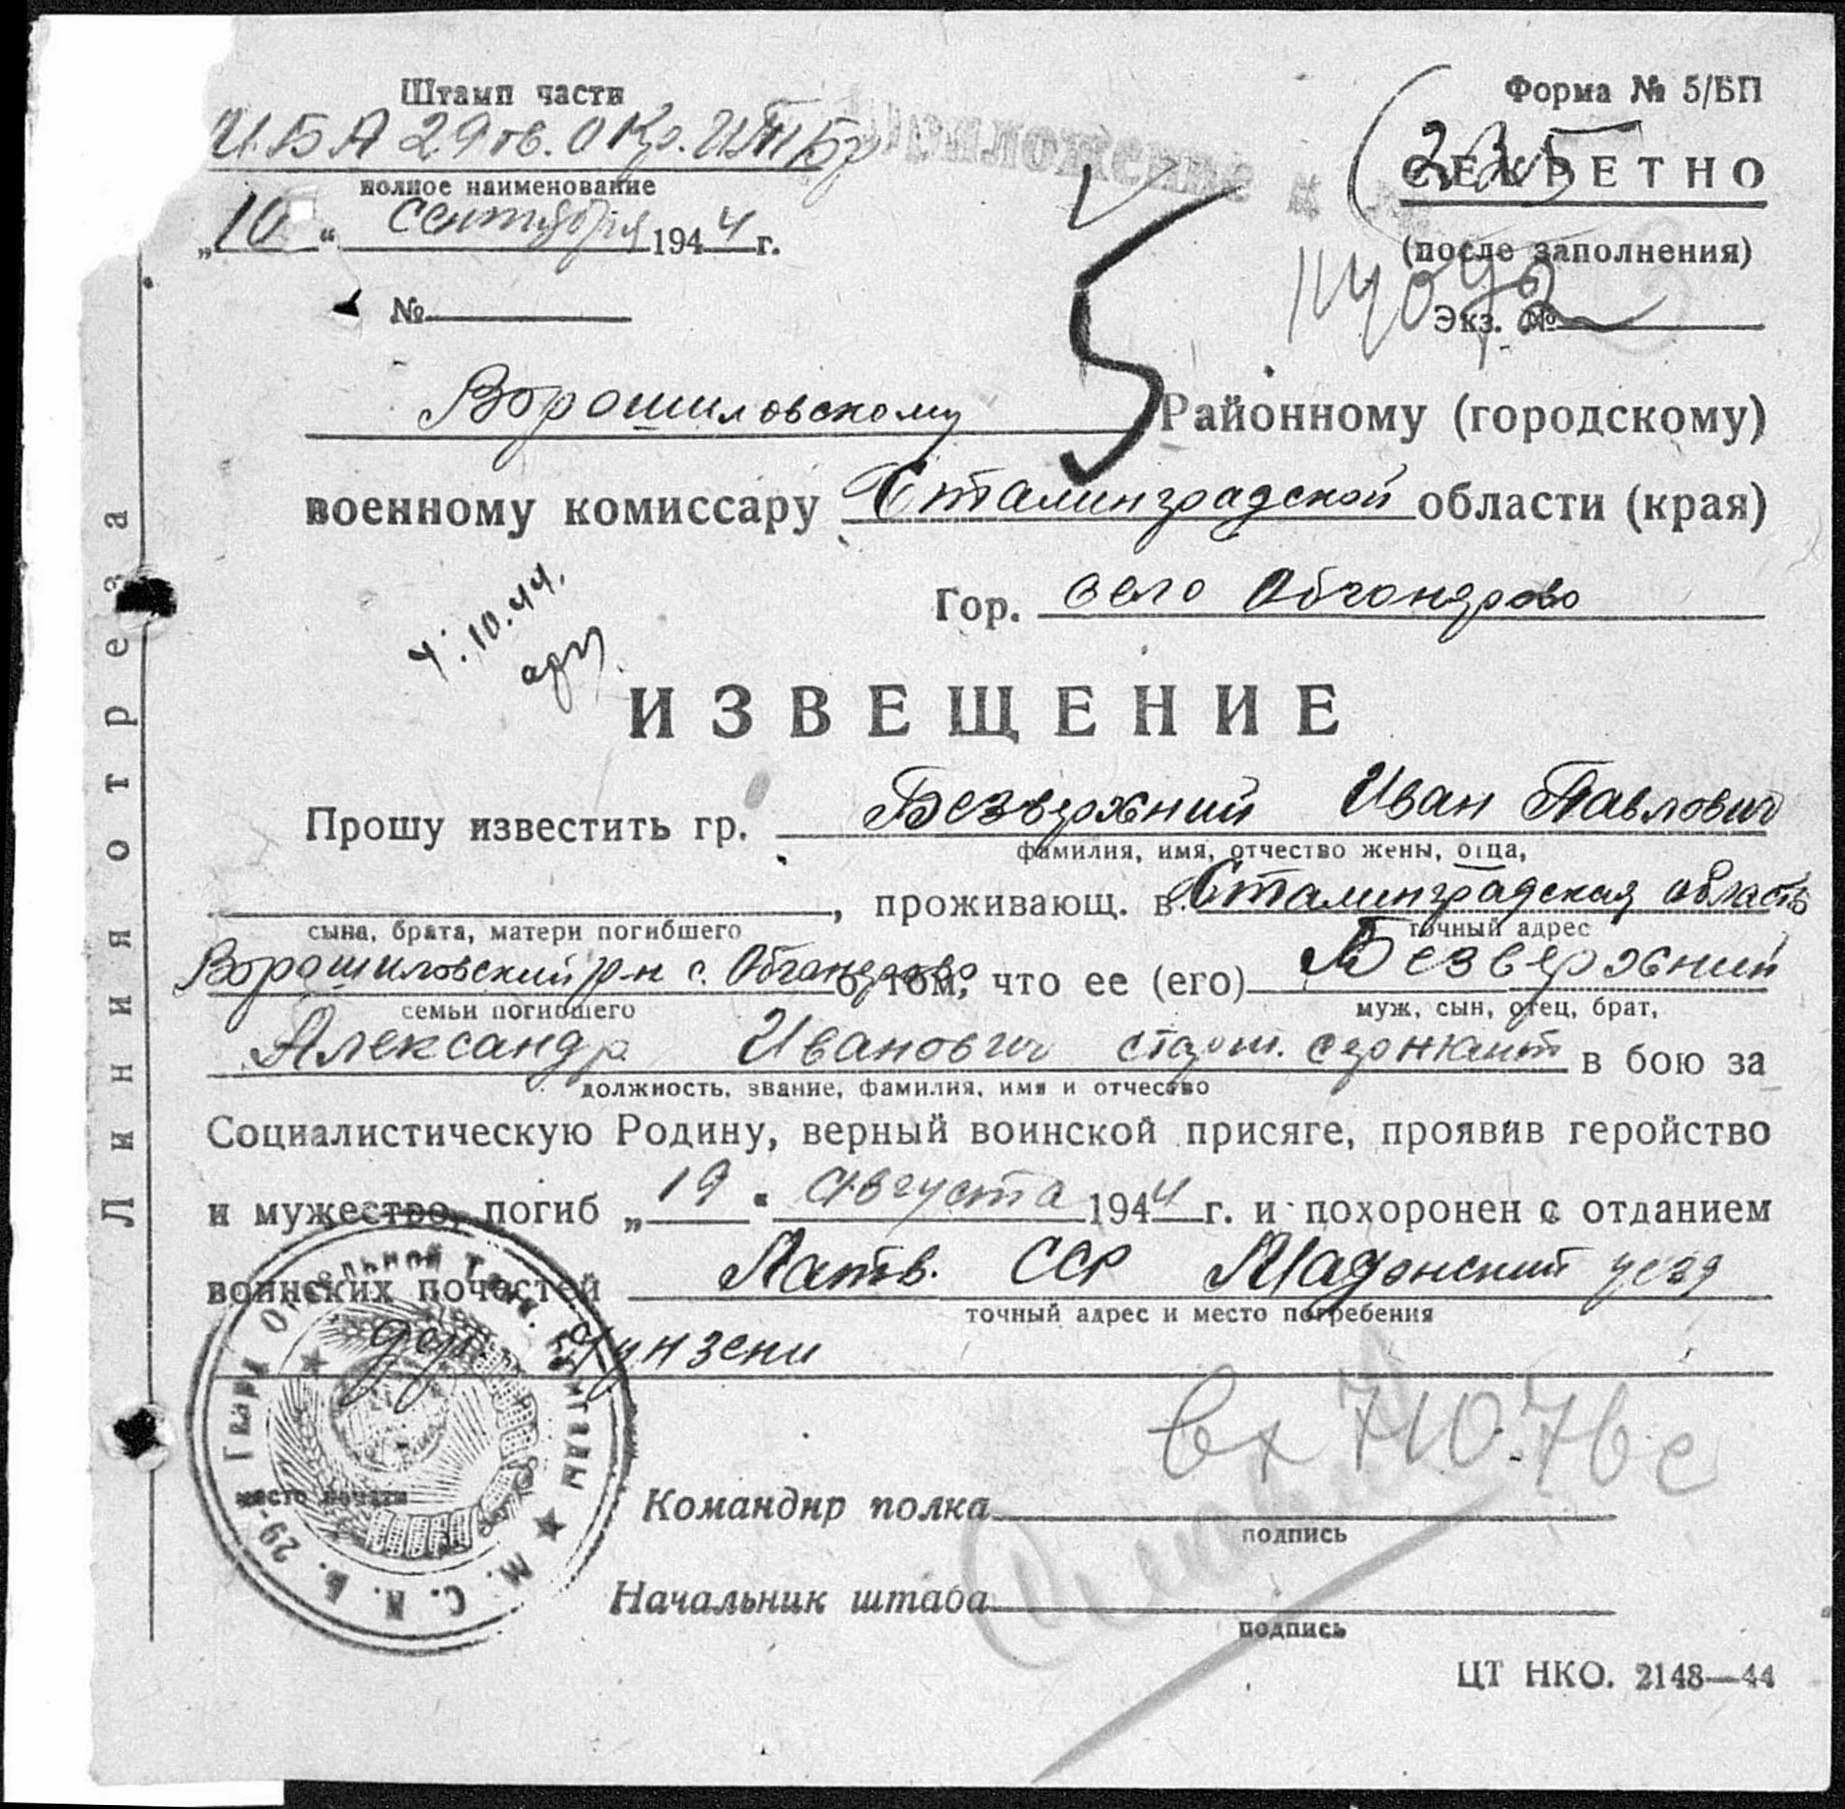 Штамп части
Форма № 5/БП
29 гв. О
СЕКРЕТНО
полное наименование
„10“ сентября 1944 г.
(после заполнения)
№
Экз. №
Ворошиловскому Районному (городскому)
военному комиссару Сталинградской области (края)
Гор. село Абганерово
4.10.44.
ИЗВЕЩЕНИЕ
Прошу известить гр. Безверхний Иван Павлович
фамилия, имя, отчество жены, отца,
, проживающ. в Сталинградская область
сына, брата, матери погибшего
точный адрес
Ворошиловский р-н с. Абганерово о том, что ее (его) Безверхний
семьи погибшего
муж, сын, отец, брат,
Александр Иванович старш. сержант в бою за
должность, звание, фамилия, имя и отчество
Социалистическую Родину, верный воинской присяге, проявив геройство
и мужество, погиб „19“ августа 1944 г. и похоронен с отданием
воинских почестей Латв. ССР Мадонский уезд
точный адрес и место погребения
дер.
вх
место печати
Командир полка
подпись
Начальник штаба
подпись
ЦТ НКО. 2148—44
Линия отреза
29-й Гвард Отдельной Танк. Бригады ★ М. С.